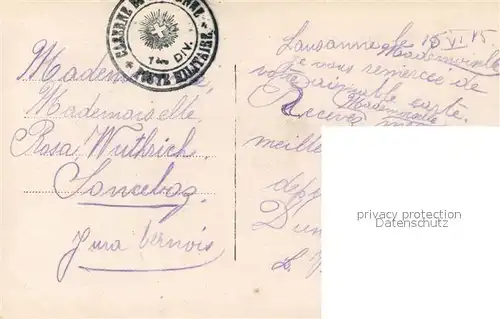 1ère DIV.
POSTE MILITAIRE
Mademoiselle,
Mademoiselle,
Rosa Wuthrich,
Sonceboz
Jura bernois
Lausanne le 15 VI 15
Mademoiselle
je vous remercie de
votre aimable carte.
Recevez Mademoiselle
meille
Dun
privacy protection
Datenschutz